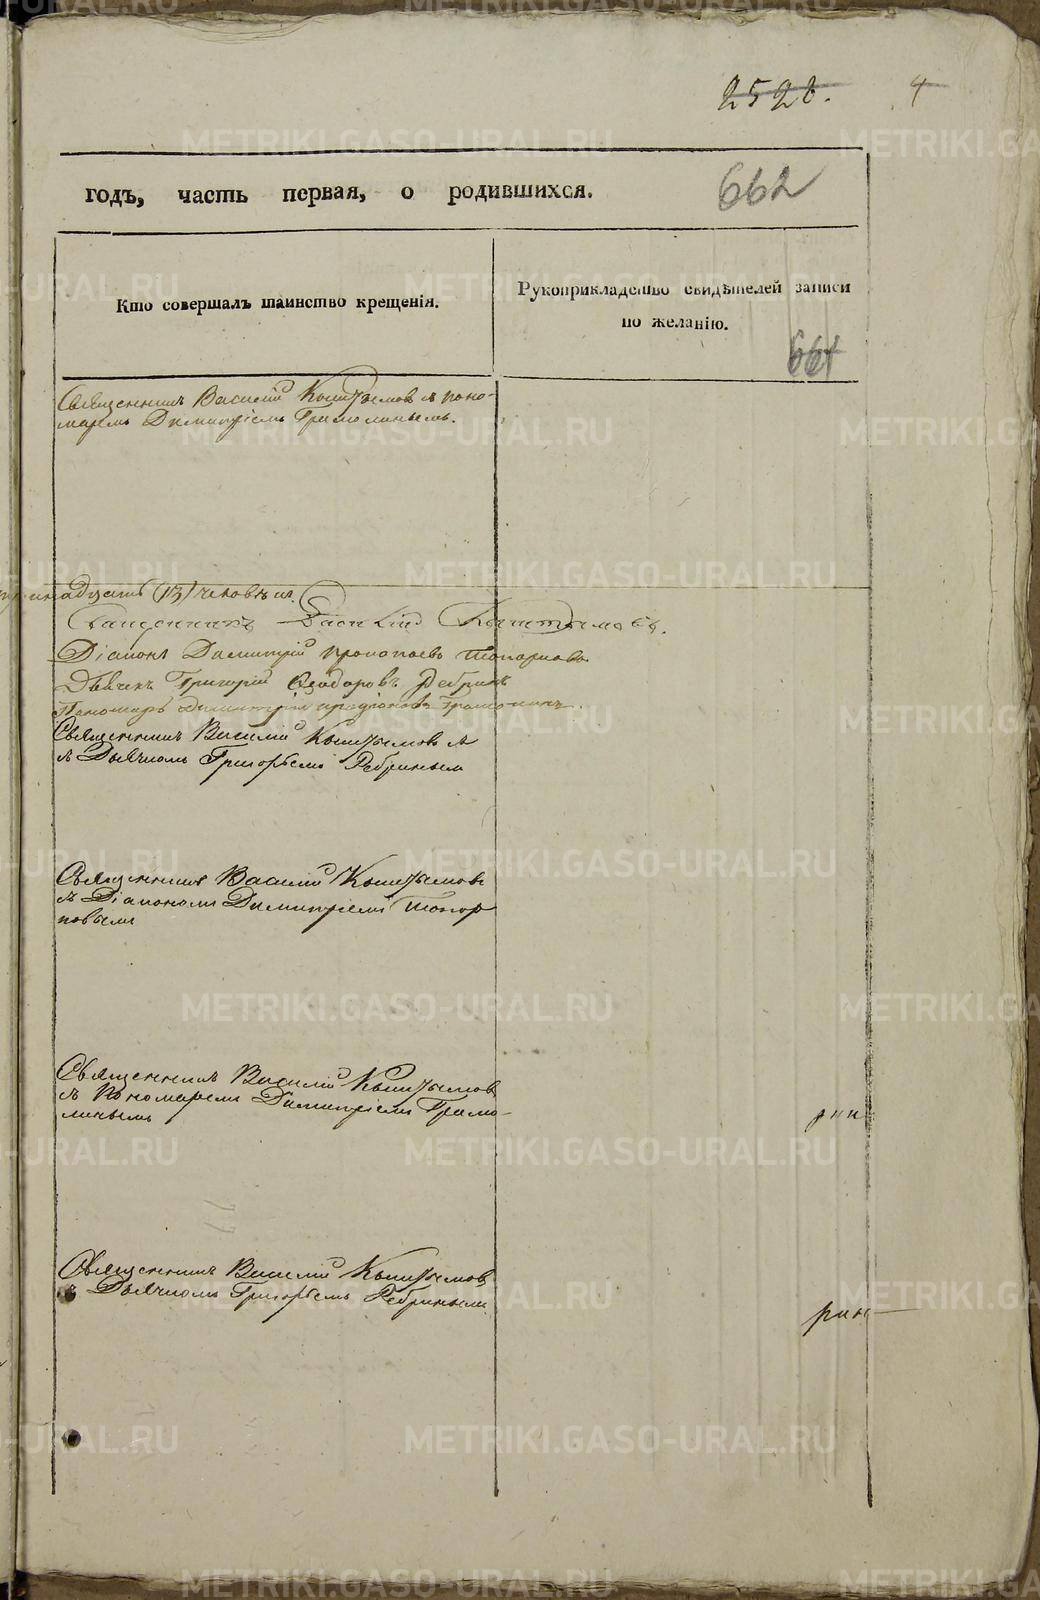 2528. 4
METRIKI.GASO-URAL.RU
годъ, часть первая, о родившихся. 662
Кто совершалъ таинство крещенія.
Рукоприкладство свидѣтелей записи
по желанію.
664
Священникъ Василій Кыштымов съ поно-
маремъ Димитріемъ Грамолинымъ.
(13) человѣкъ
Священникъ Василій Кыштымовъ.
Діаконъ Димитрій Прокопьевъ Топорковъ
Дьячекъ Григорій Ѳеодоровъ Ребринъ
Пономарь Димитрій Грамолинъ.
Священникъ Василій Кыштымовъ
съ Дьячкомъ Григорьемъ Ребринымъ
Священникъ Василій Кыштымовъ
съ Діакономъ Димитріемъ Топор
ковымъ
Священникъ Василій Кыштымов
съ Пономаремъ Димитріемъ Грамо-
линымъ
Священникъ Василій Кыштымов
съ Дьячкомъ Григорьемъ Ребринымъ